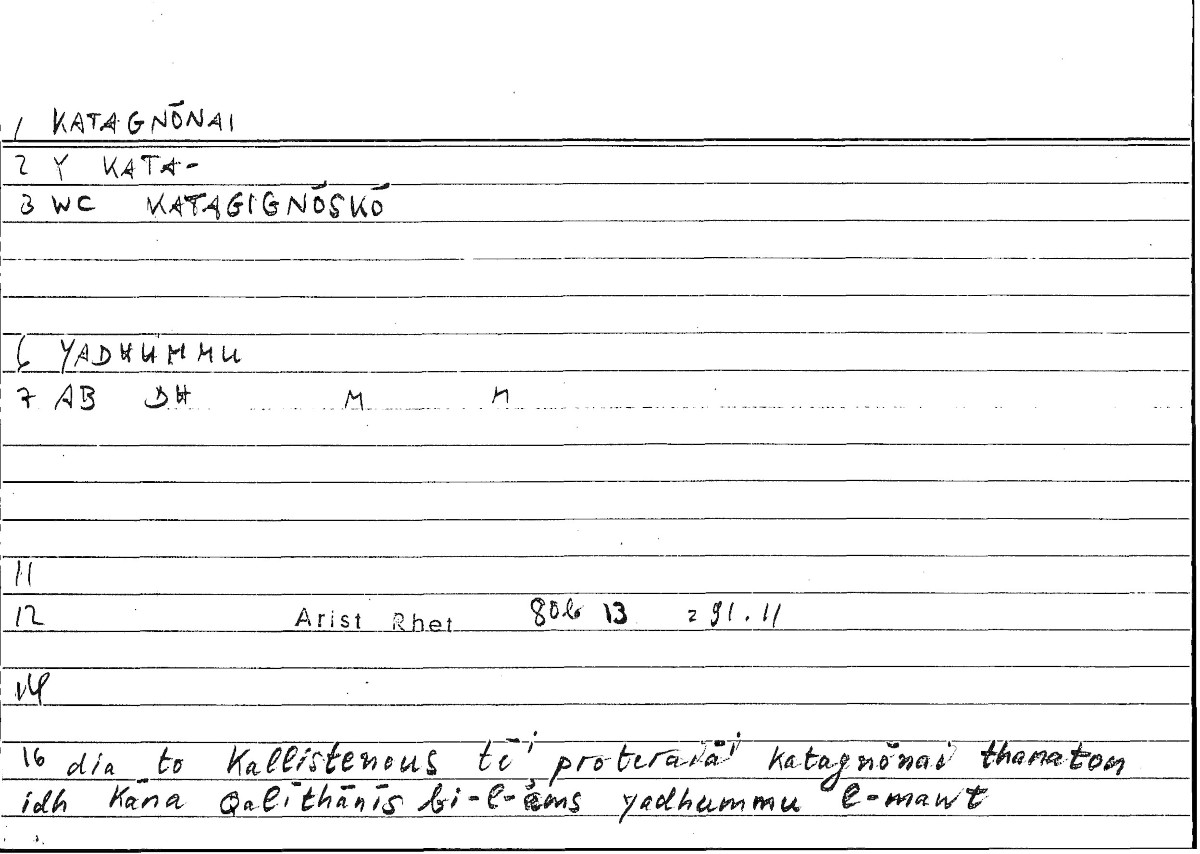 1 KATAGNŌNAI
2 Y KATA-
3 WC KATAGIGNŌSKŌ
6 YADHUMMU
7 AB DH M M
11
12 Arist Rhet 80b 13 = 91.11
14
16 dia to Kallistenous tēi proteraiāi katagnōnai thanaton
idh Kāna Qalīthānīs bi-l-ams yadhummu l-mawt